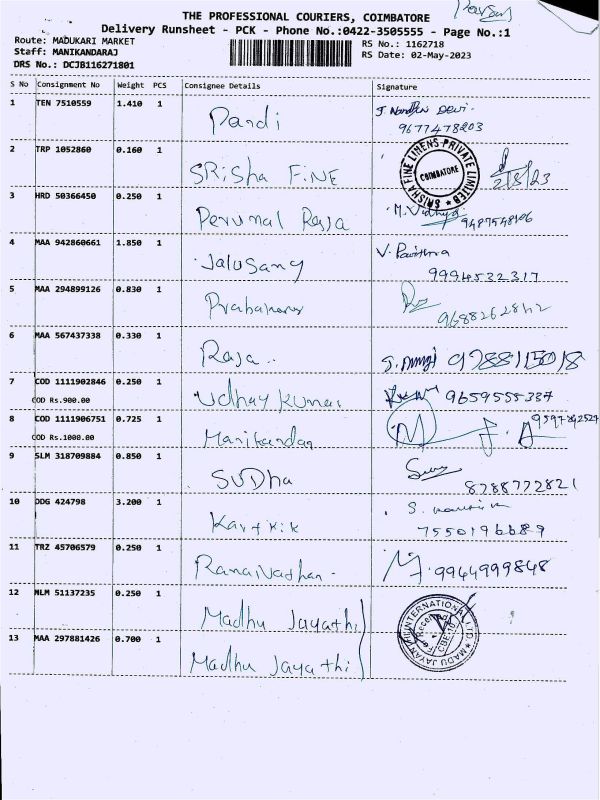 THE PROFESSIONAL COURIERS, COIMBATORE
Delivery Runsheet - PCK - Phone No.:0422-3505555 - Page No.:1
Route: MADUKARI MARKET
RS No.: 1162718
Staff: MANIKANDARAJ
RS Date: 02-May-2023
DRS No.: DCJB116271801
S No Consignment No Weight PCS Consignee Details Signature
1 TEN 7510559 1.410 1 Pandi J. Nandhu Devi.
9677478203
2 TRP 1052860 0.160 1 SRisha FiNE SRISHA FINE LINENS PRIVATE LIMITED COIMBATORE 2/8/23
3 HRD 50366450 0.250 1 Perumal Raja M. Vidhya 9487548106
4 MAA 942860661 1.850 1 Jalusang V. Pavithra
9994532317
5 MAA 294899126 0.830 1 9688262842
6 MAA 567437338 0.330 1 Raja.. 9788115018
7 COD 1111902846 0.250 1 Udhay Kumar 9659555337
COD Rs.900.00
8 COD 1111906751 0.725 1 Manikandan 9597892527
COD Rs.1000.00
9 SLM 318709884 0.850 1 SUDha
8788772821
10 DDG 424798 3.200 1 Kartkik
7550196689
11 TRZ 45706579 0.250 1 9944999848
12 NLM 51137235 0.250 1 Madhu Jayathi
13 MAA 297881426 0.700 1 Madhu Jayathi MADU JAYANTI INTERNATIONAL LTD